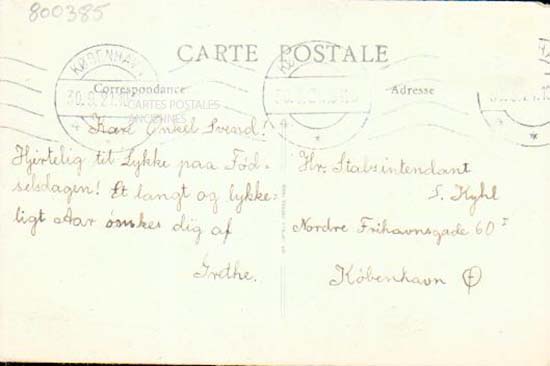 800385
CARTE POSTALE
KØBENHAVN
30.9.21.
Correspondance
Adresse
CARTES POSTALES
ANCIENNES
Kære Onkel Svend!
Hjertelig til Lykke paa Fød-
selsdagen! Et langt og lykke-
ligt Aar ønskes dig af
Grethe.
Hr. Stabsintendant
S. Kyhl
Nordre Frihavnsgade 60 I
København Ø